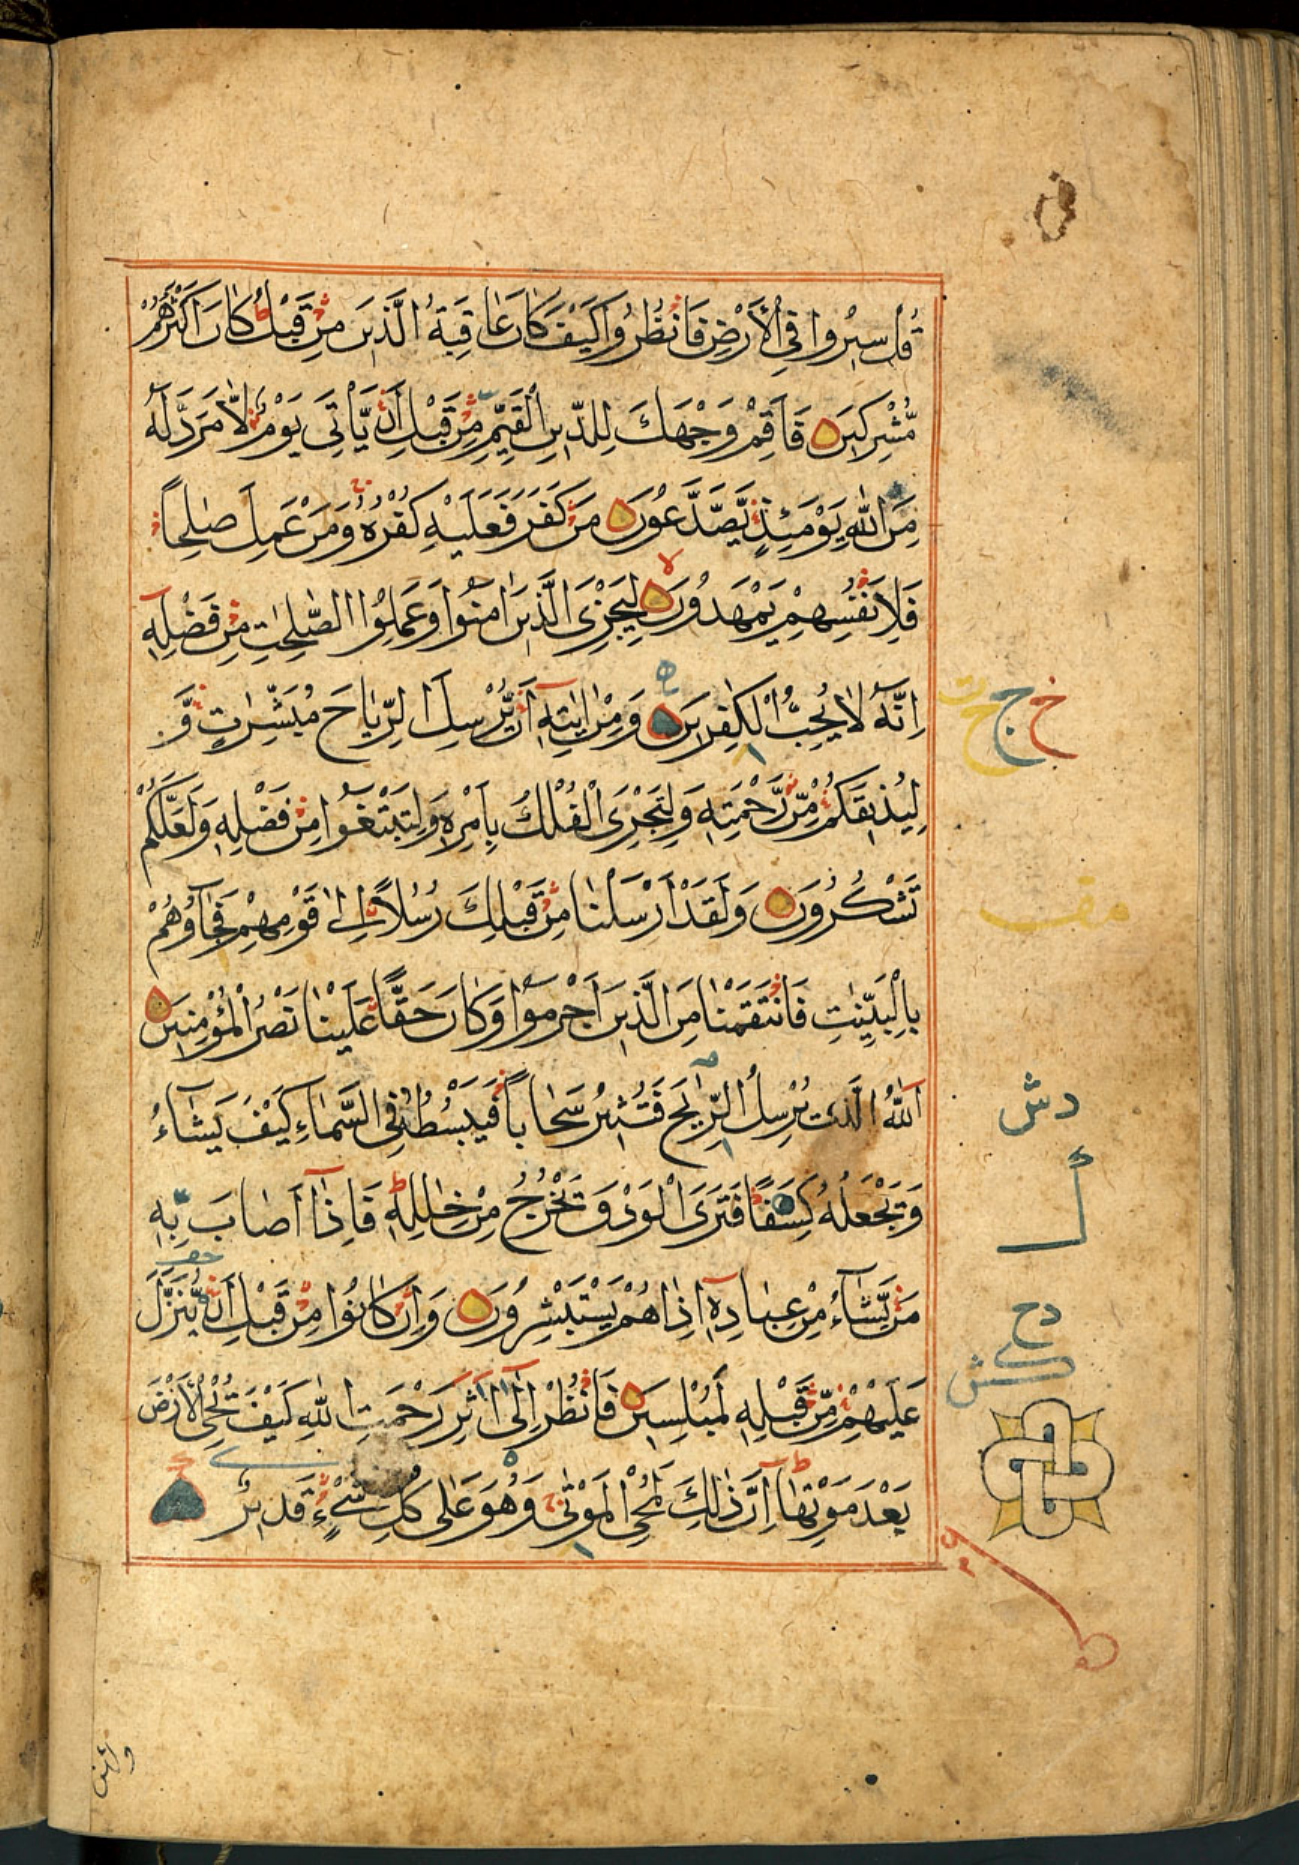 قُلْ سِيْرُوا فِي الْأَرْضِ فَانْظُرُوا كَيْفَ كَانَ عَاقِبَةُ الَّذِيْنَ مِنْ قَبْلُ كَانَ اَكْثَرُهُمْ
مُّشْرِكِيْنَ فَاَقِمْ وَجْهَكَ لِلدِّيْنِ الْقَيِّمِ مِنْ قَبْلِ اَنْ يَّاْتِيَ يَوْمٌ لَّا مَرَدَّ لَهٗ
مِنَ اللّٰهِ يَوْمَئِذٍ يَّصَّدَّعُوْنَ مَنْ كَفَرَ فَعَلَيْهِ كُفْرُهٗ وَمَنْ عَمِلَ صٰلِحًا
فَلِاَنْفُسِهِمْ يَمْهَدُوْنَ لِيَجْزِيَ الَّذِيْنَ اٰمَنُوْا وَعَمِلُوا الصّٰلِحٰتِ مِنْ فَضْلِهٖ
اِنَّهٗ لَا يُحِبُّ الْكٰفِرِيْنَ وَمِنْ اٰيٰتِهٖ اَنْ يُّرْسِلَ الرِّيَاحَ مُبَشِّرٰتٍ وَّ
لِيُذِيْقَكُمْ مِّنْ رَّحْمَتِهٖ وَلِتَجْرِيَ الْفُلْكُ بِاَمْرِهٖ وَلِتَبْتَغُوْا مِنْ فَضْلِهٖ وَلَعَلَّكُمْ
تَشْكُرُوْنَ وَلَقَدْ اَرْسَلْنَا مِنْ قَبْلِكَ رُسُلًا اِلٰى قَوْمِهِمْ فَجَآؤُهُمْ
بِالْبَيِّنٰتِ فَانْتَقَمْنَا مِنَ الَّذِيْنَ اَجْرَمُوْا وَكَانَ حَقًّا عَلَيْنَا نَصْرُ الْمُؤْمِنِيْنَ
اَللّٰهُ الَّذِيْ يُرْسِلُ الرِّيٰحَ فَتُثِيْرُ سَحَابًا فَيَبْسُطُهٗ فِي السَّمَآءِ كَيْفَ يَشَآءُ
وَيَجْعَلُهٗ كِسَفًا فَتَرَى الْوَدْقَ يَخْرُجُ مِنْ خِلٰلِهٖ فَاِذَآ اَصَابَ بِهٖ
مَنْ يَّشَآءُ مِنْ عِبَادِهٖ اِذَا هُمْ يَسْتَبْشِرُوْنَ وَاِنْ كَانُوْا مِنْ قَبْلِ اَنْ يُّنَزَّلَ
عَلَيْهِمْ مِّنْ قَبْلِهٖ لَمُبْلِسِيْنَ فَانْظُرْ اِلٰى اٰثٰرِ رَحْمَتِ اللّٰهِ كَيْفَ يُحْيِ الْأَرْضَ
بَعْدَ مَوْتِهَا اِنَّ ذٰلِكَ لَمُحْيِ الْمَوْتٰى وَهُوَ عَلٰى كُلِّ شَيْءٍ قَدِيْرٌ
خ ج ح ت
دش
ا
دح
كش
ولئن